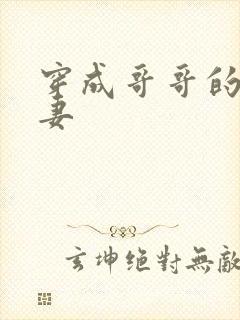 穿成哥哥的
妻
玄坤绝對無敵